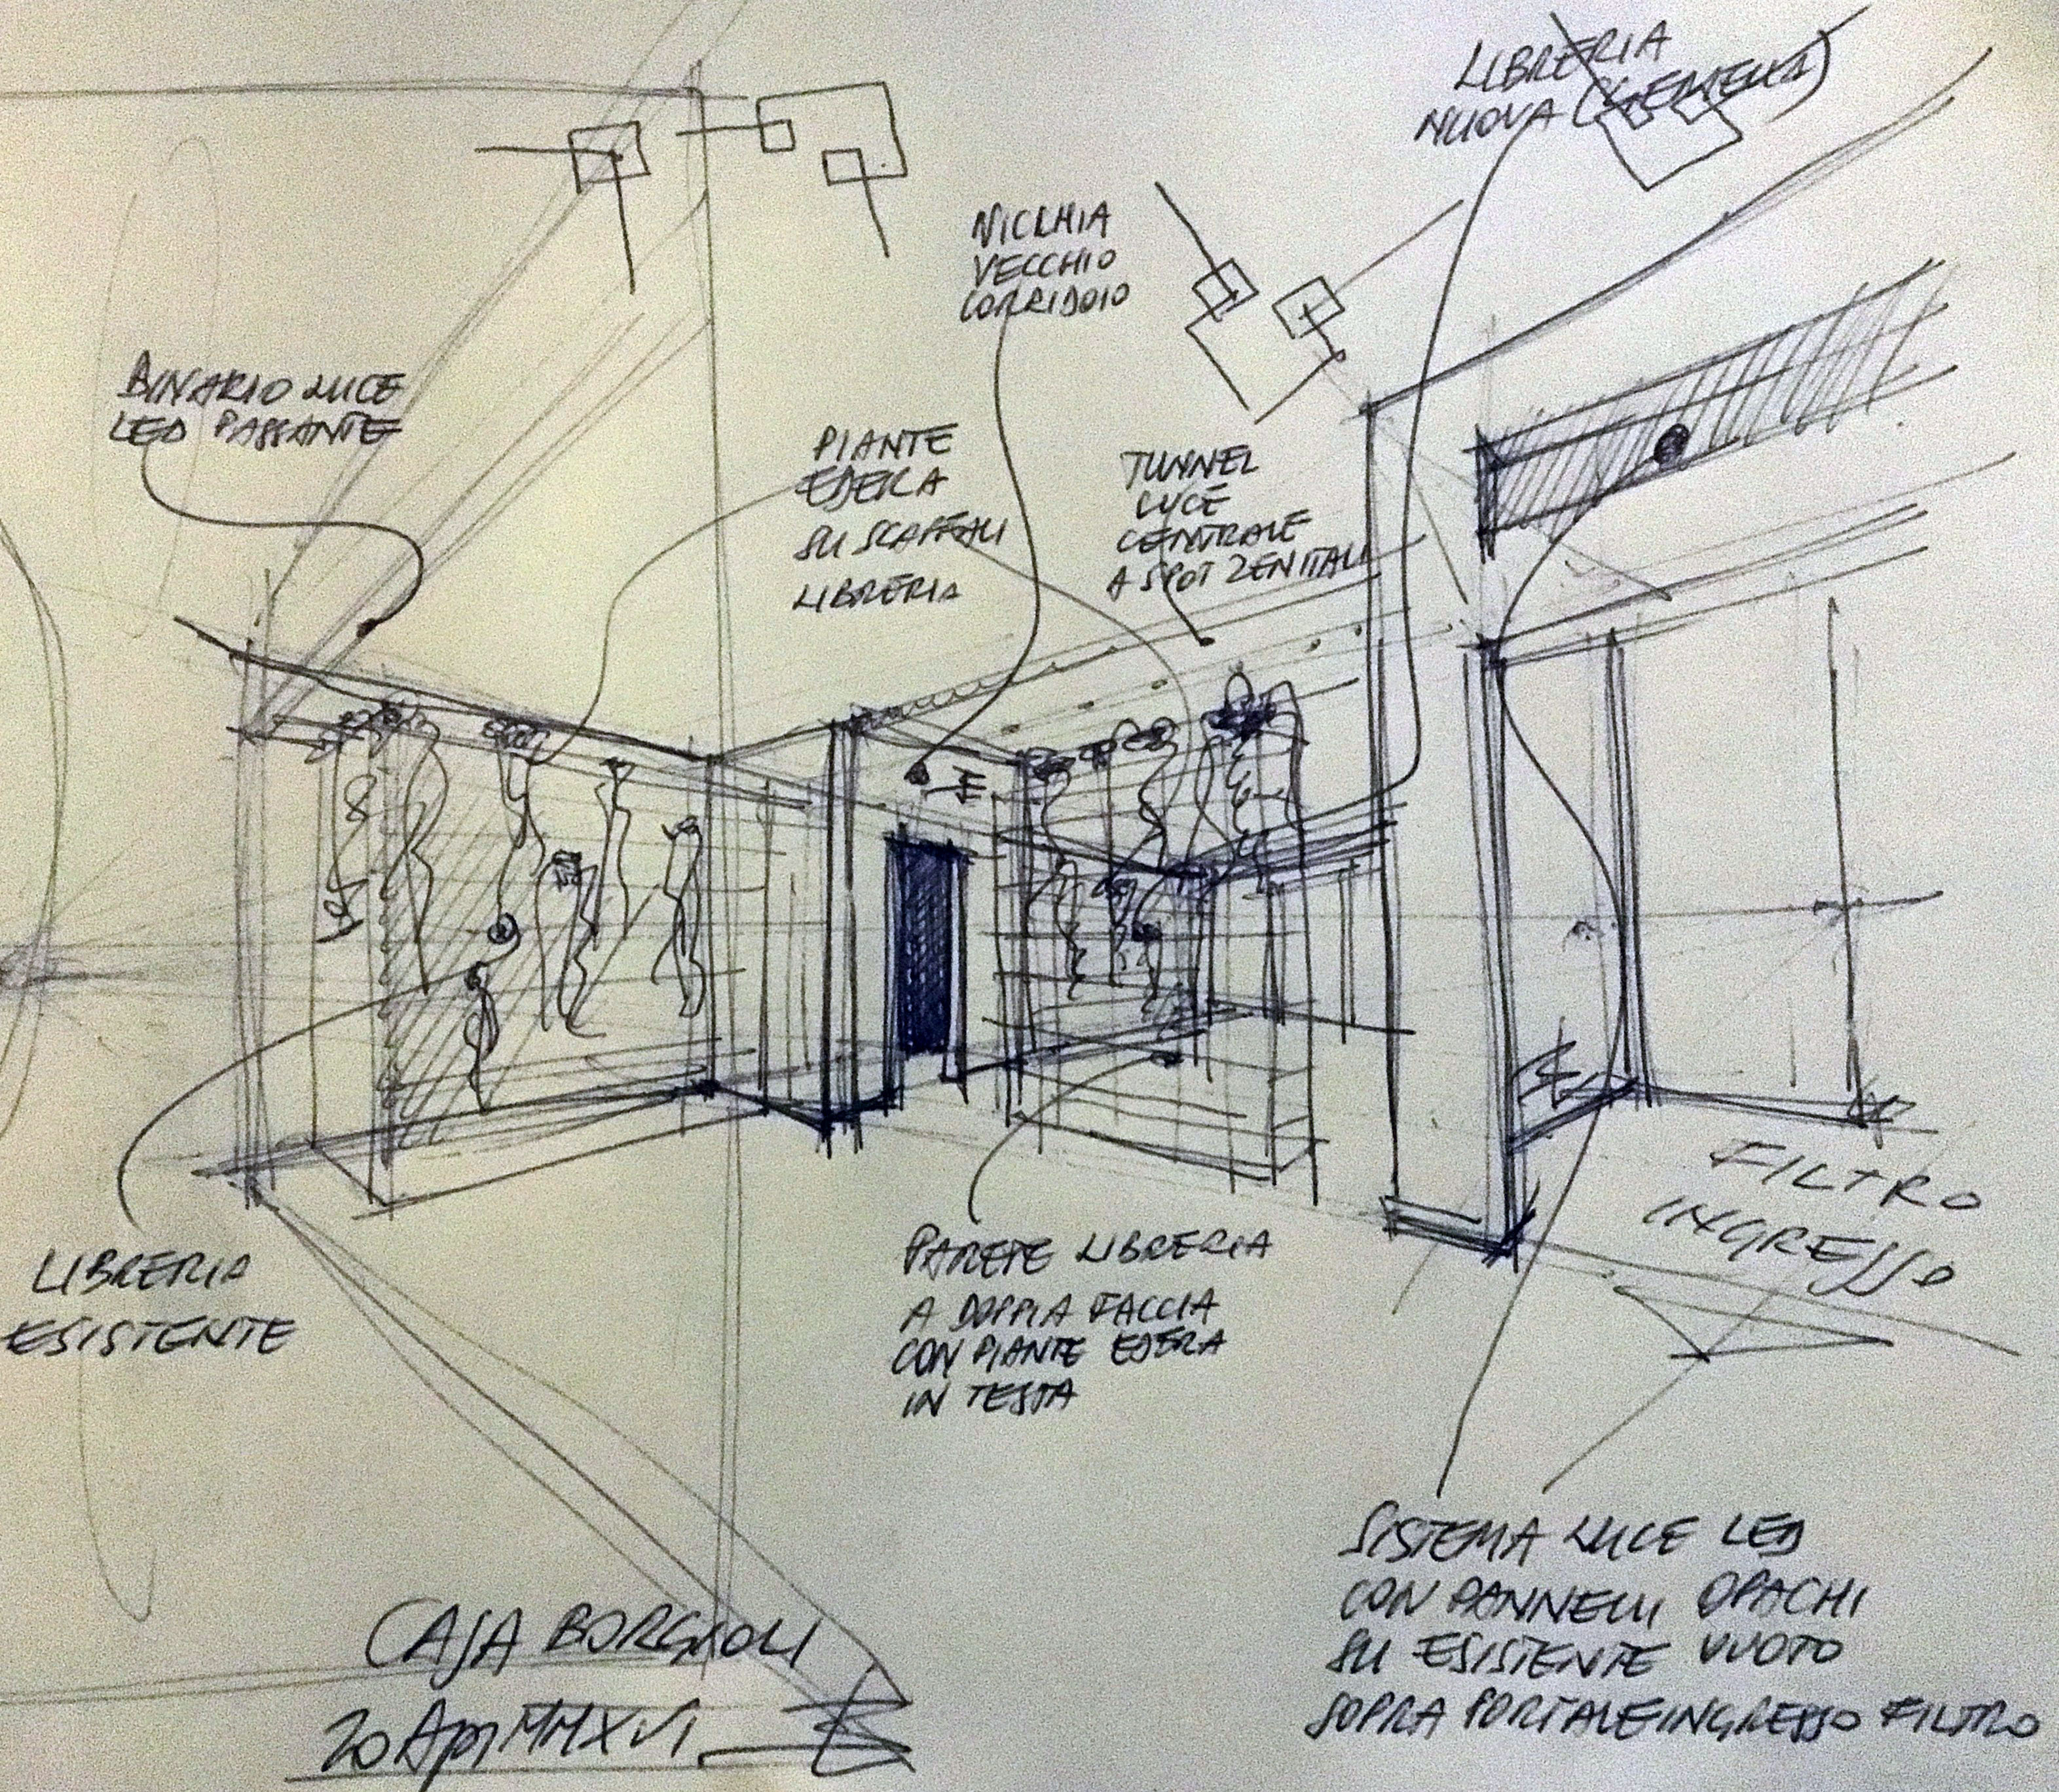 LIBRERIA
NUOVA (GEMELLA)
NICCHIA
VECCHIO
CORRIDOIO
BINARIO LUCE
LED PASSANTE
PIANTE
EDERA
SU SCAFFALI
LIBRERIA
TUNNEL
LUCE
CENTRALE
A SPOT ZENITALI
FILTRO
INGRESSO
LIBRERIA
ESISTENTE
PARETE LIBRERIA
A DOPPIA FACCIA
CON PIANTE EDERA
IN TESTA
SISTEMA LUCE LED
CON PANNELLI OPACHI
SU ESISTENTE VUOTO
SOPRA PORTALE INGRESSO FILTRO
CASA BORGIOLI
20 Apr MMXVI